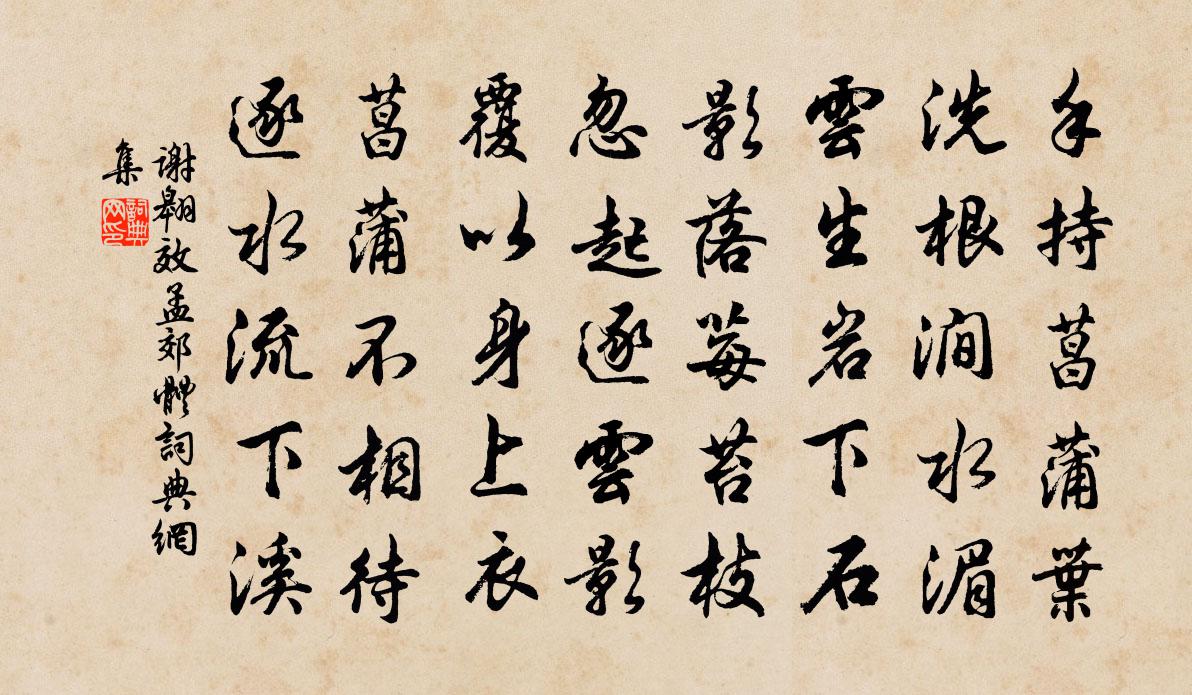 手持菖蒲葉
洗根澗水湄
雲生岩下石
影落莓苔枝
忽起逐雲影
覆以身上衣
菖蒲不相待
逐水流下溪
謝翱效孟郊體詞典網
集
詞典
网印